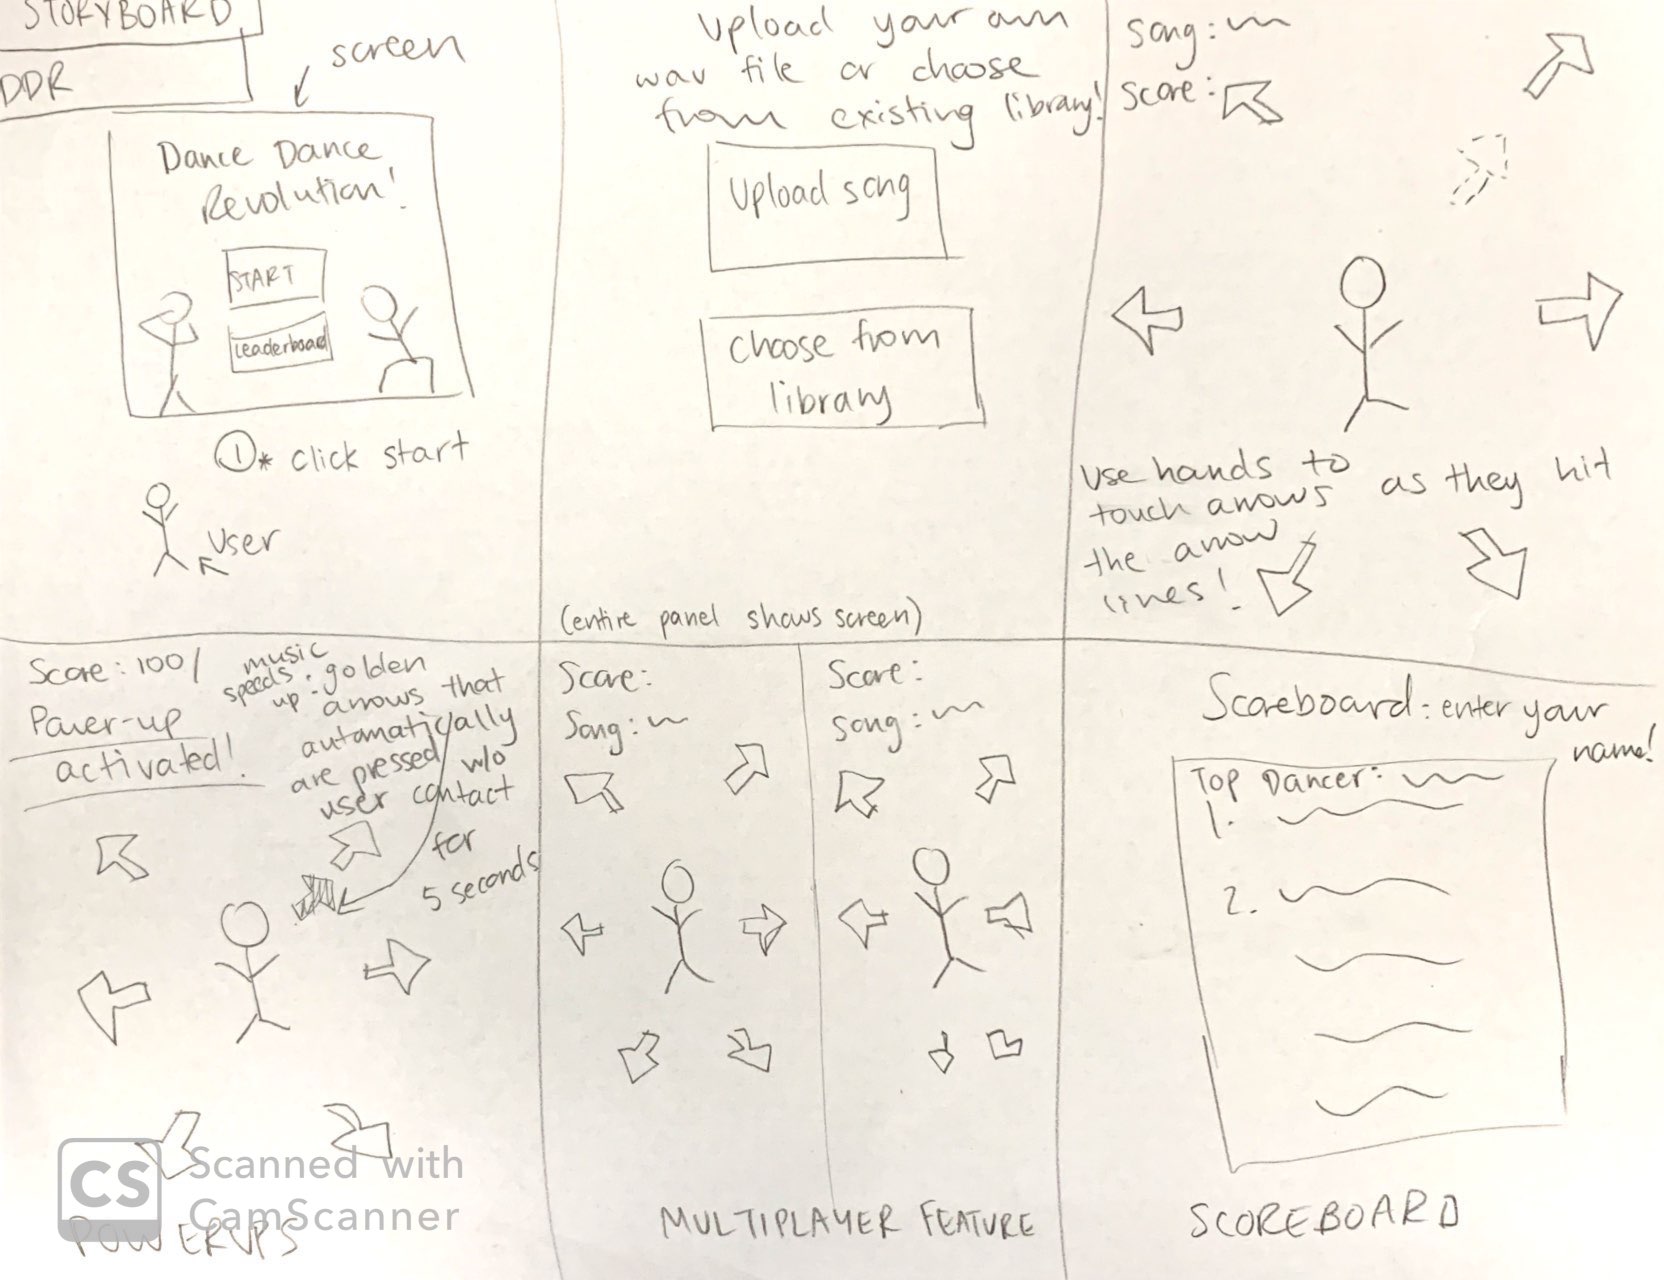 STORYBOARD
DDR
screen
Dance Dance
Revolution!
START
Leaderboard
1* click start
User
Upload your own
wav file or choose
from existing library!
Upload song
Choose from
library
(entire panel shows screen)
Song:
Score:
Use hands to
touch arrows as they hit
the arrow
lines!
Score: 100/
Power-up
activated!
music
speeds
up
golden
arrows that
automatically
are pressed w/o
user contact
for
5 seconds
POWERUPS
Score:
Song:
Score:
Song:
MULTIPLAYER FEATURE
Scoreboard: enter your
name!
Top Dancer:
1.
2.
SCOREBOARD
CS Scanned with
CamScanner